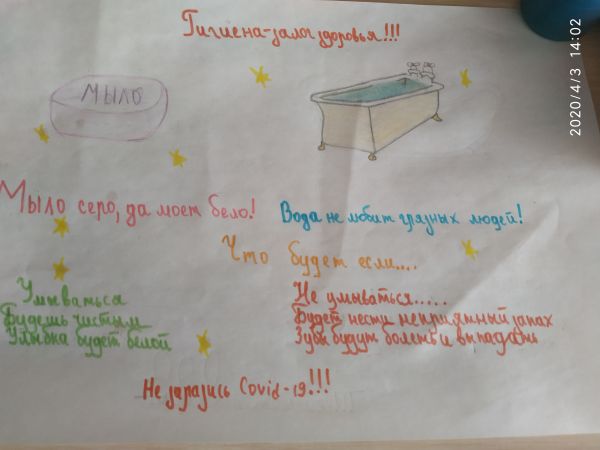 Гигиена-залог здоровья!!!
2020/4/3 14:02
МЫЛО
Мыло серо, да моет бело!
Вода не любит грязных людей!
Что будет если....
Умываться
Будешь чистым
Улыбка будет белой
Не умываться.....
Будет нести неприятный запах
Зубы будут болеть и выпадать
Не заразись Covid-19!!!